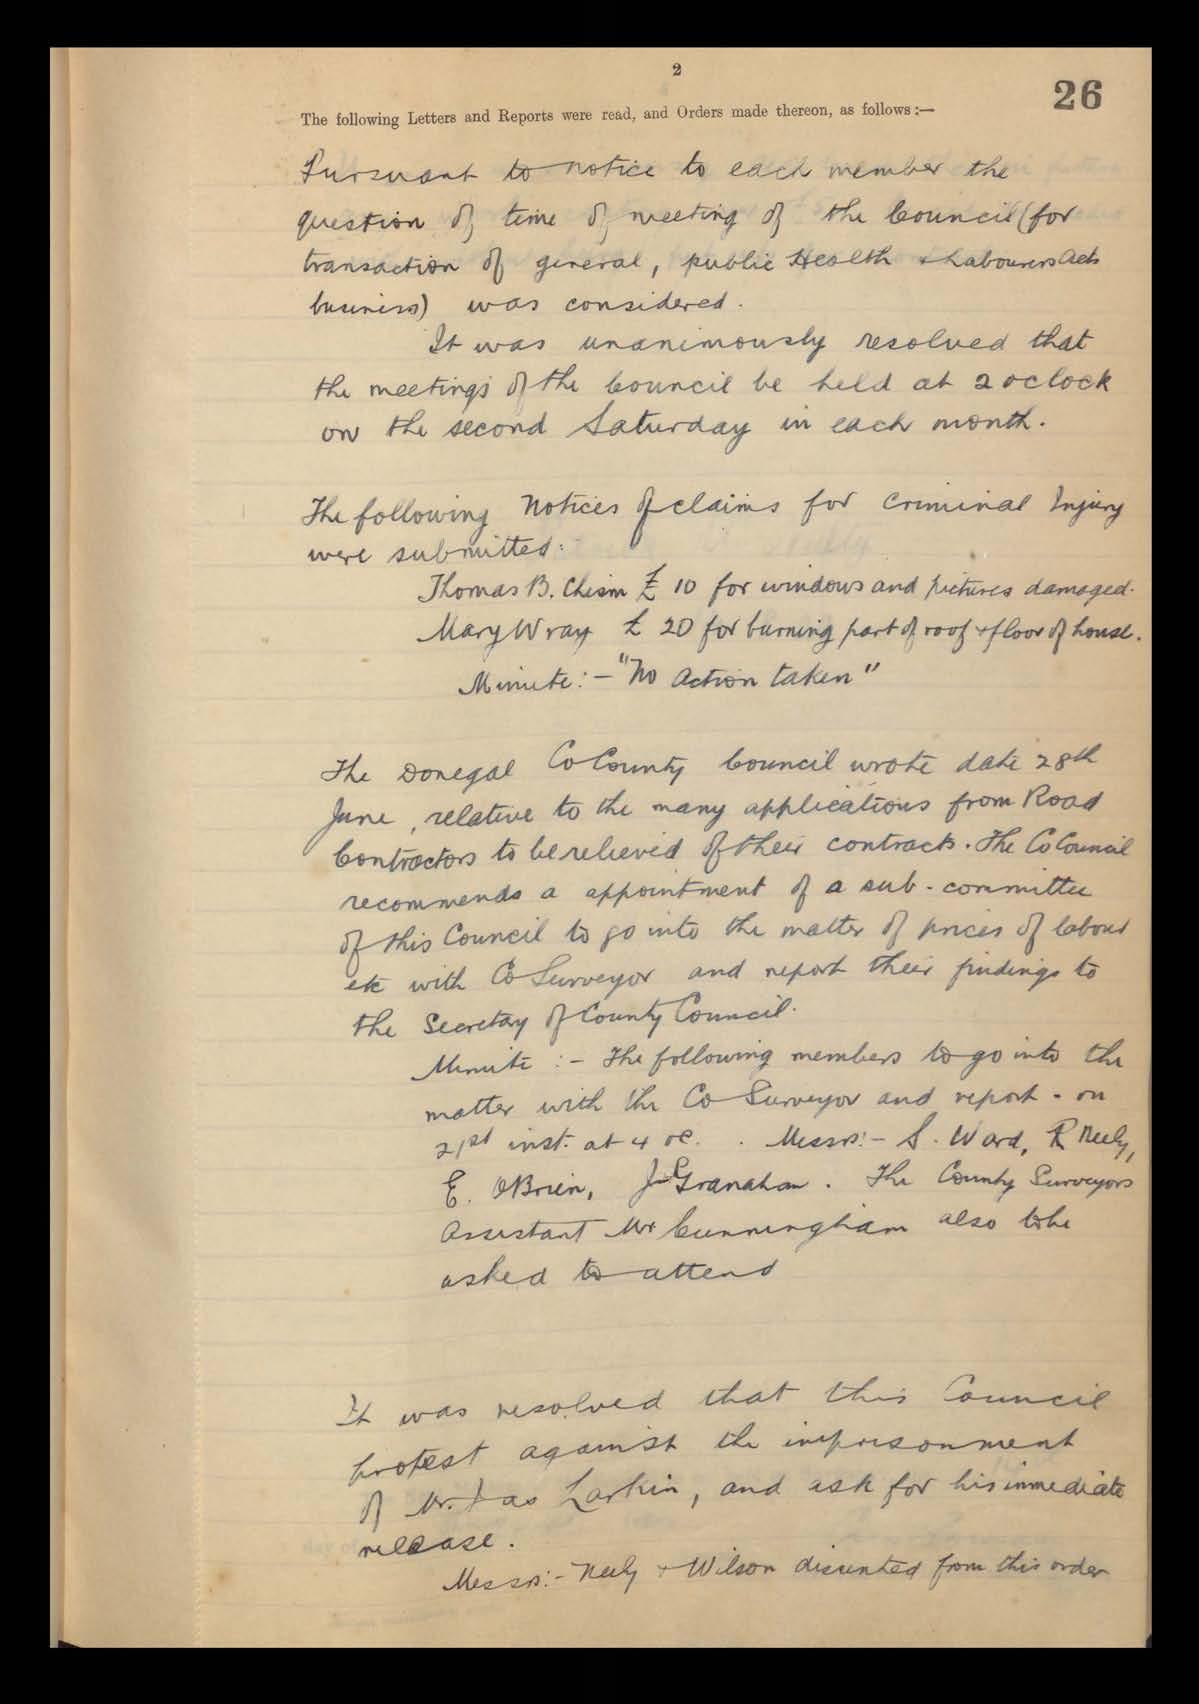 2
26
The following Letters and Reports were read, and Orders made thereon, as follows :—
Pursuant to notice to each member the
question of time of meeting of the Council (for
transaction of general, public Health + Labourers Acts
business) was considered.
It was unanimously resolved that
the meetings of the Council be held at 2 oclock
on the second Saturday in each month.
The following Notices of claims for Criminal Injury
were submitted:
Thomas B. Chism £10 for windows and pictures damaged.
Mary Wray £20 for burning part of roof + floor of house.
Minute:- "No Action taken"
The Donegal Co County Council wrote date 28th
June, relative to the many applications from Road
Contractors to be relieved of their contracts. The Co Council
recommends a appointment of a sub-committee
of this Council to go into the matter of prices of labour
etc with Co Surveyor and report their findings to
the Secretay of County Council.
Minute :- The following members to go into the
matter with the Co Surveyor and report - on
21st inst. at 4 oc. . Messrs:- S. Ward, R Neely,
E. OBrien, J Granahan. The County Surveyors
Assistant Mr Cunningham also to be
asked to attend
It was resolved that this Council
protest against the imprisonment
of Mr. Jas Larkin, and ask for his immediate
release.
Messrs:- Neely + Wilson dissented from this order